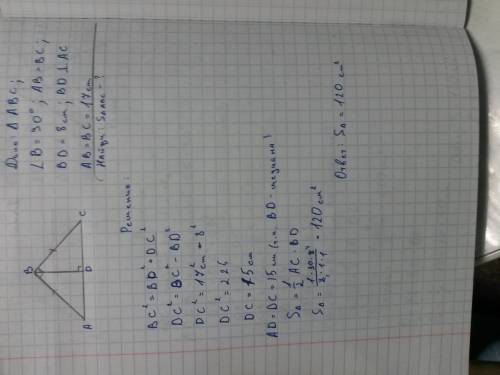 Дано: Δ ABC;
∠B = 90°; AB = BC;
BD = 8 cm; BD ⊥ AC
AB = BC = 17 cm
Найти: SΔABC = ?
B
A
D
C
Решение:
BC² = BD² + DC²
DC² = BC² - BD²
DC² = 17² cm - 8²
DC² = 225
DC = 15 cm
AD = DC = 15 cm (т.к. BD - медиана)
SΔ = 1/2 AC · BD
SΔ = 1·30·8/2·1·1 = 120 cm²
Ответ: SΔ = 120 cm²